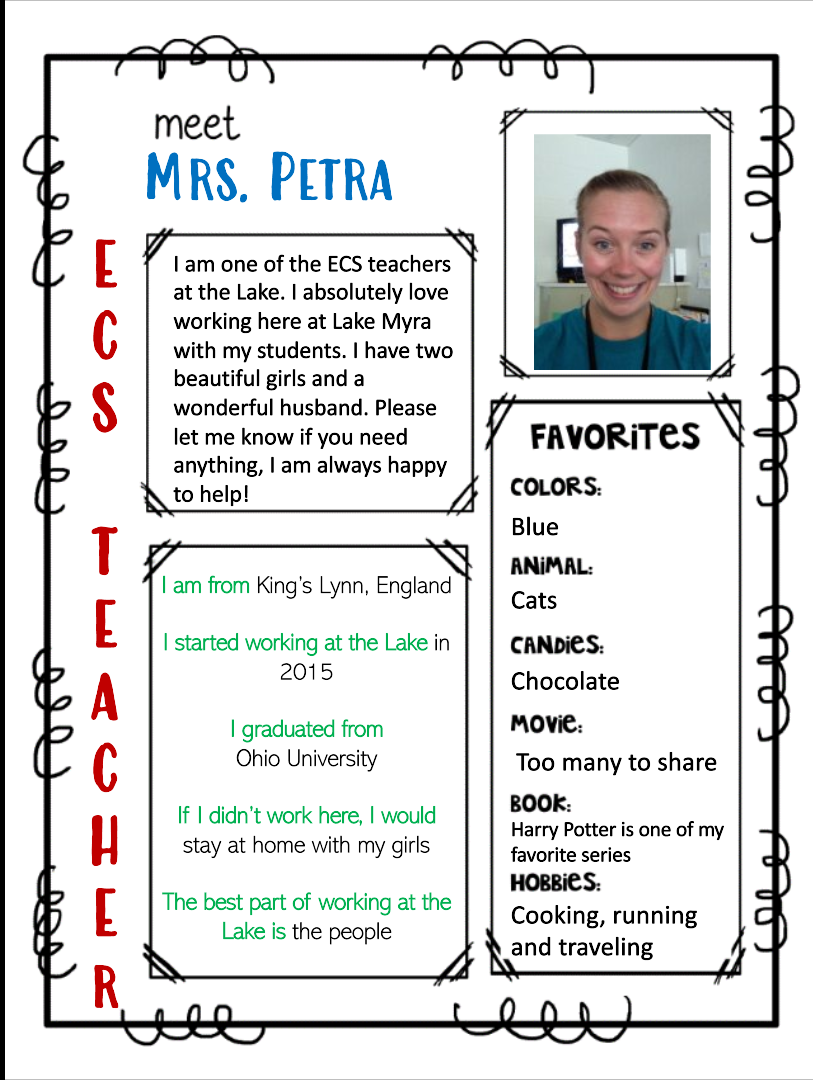 meet
MRS. PETRA
ECS
TEACHER
I am one of the ECS teachers
at the Lake. I absolutely love
working here at Lake Myra
with my students. I have two
beautiful girls and a
wonderful husband. Please
let me know if you need
anything, I am always happy
to help!
I am from King's Lynn, England
I started working at the Lake in
2015
I graduated from
Ohio University
If I didn't work here, I would
stay at home with my girls
The best part of working at the
Lake is the people
FAVORiTES
COLORS:
Blue
ANiMAL:
Cats
CANDiES:
Chocolate
MOViE:
Too many to share
BOOK:
Harry Potter is one of my
favorite series
HOBBiES:
Cooking, running
and traveling